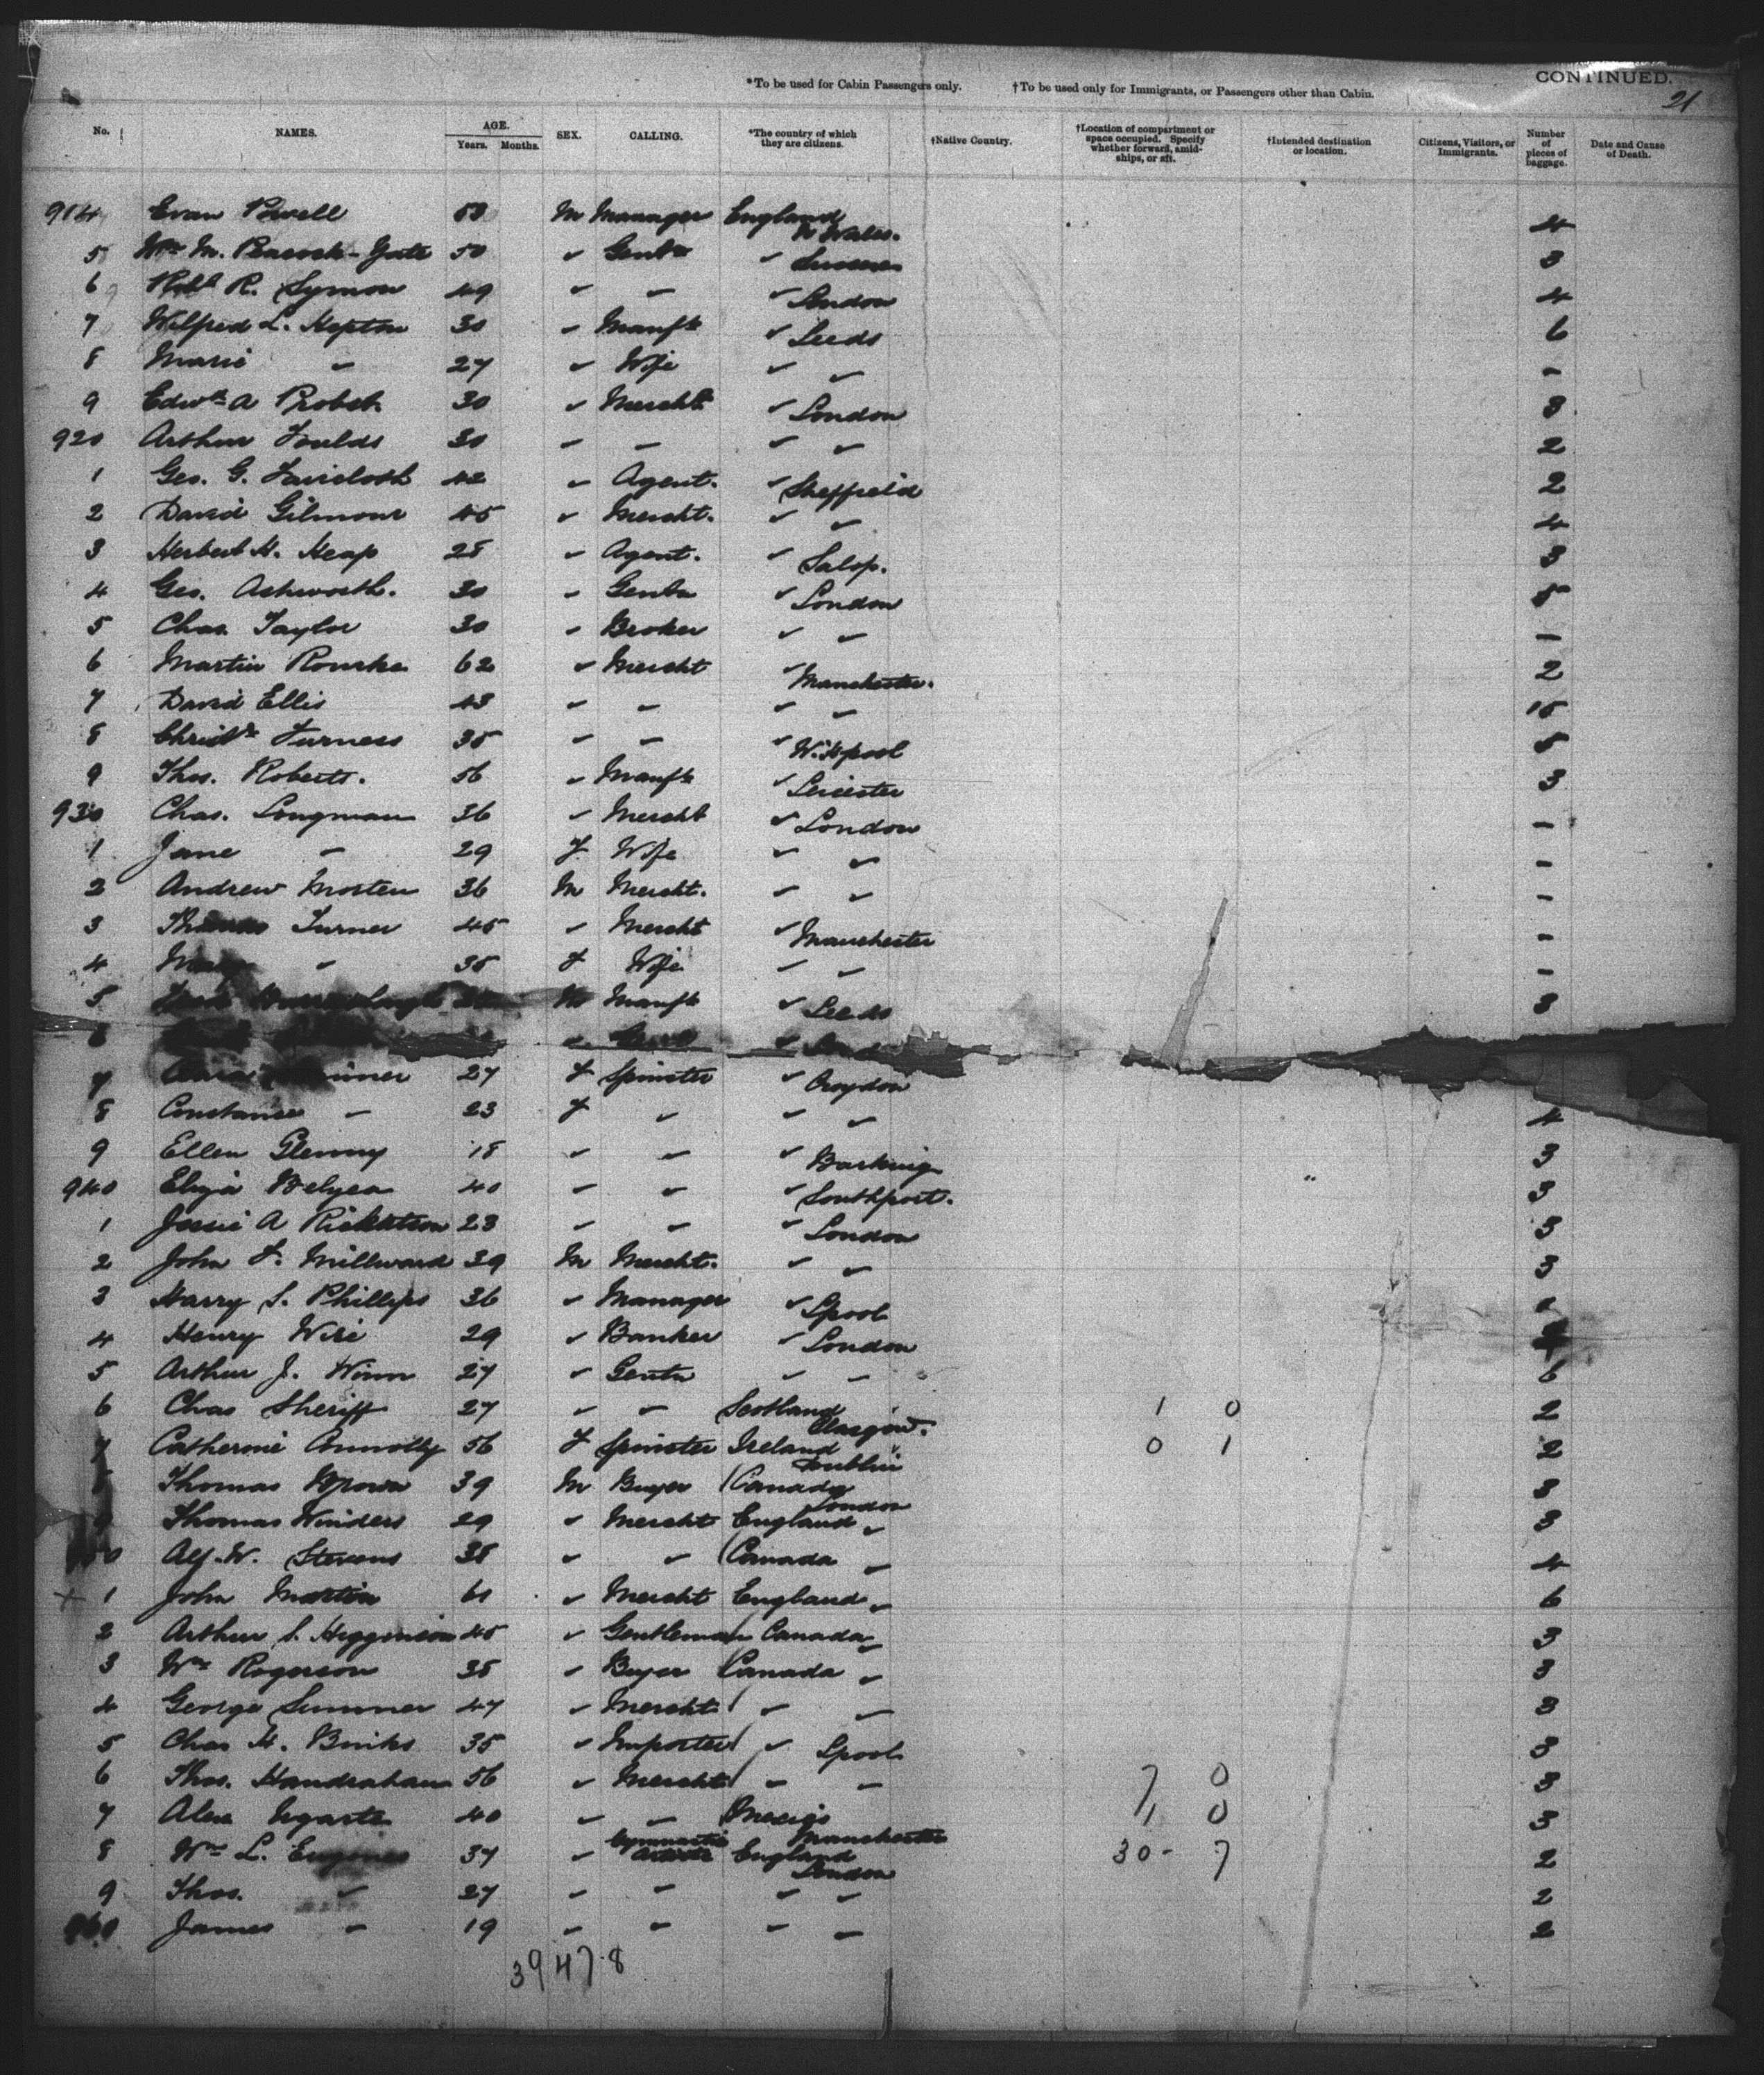 CONTINUED.
21
*To be used for Cabin Passengers only. †To be used only for Immigrants, or Passengers other than Cabin.
No. NAMES. AGE. Years. Months. SEX. CALLING. *The country of which they are citizens. †Native Country. †Location of compartment or space occupied. Specify whether forward, amidships, or aft. †Intended destination or location. Citizens, Visitors, or Immigrants. Number of pieces of baggage. Date and Cause of Death.
914 Evan Powell M Manager England N Wales. 4
5 Wm M. Peacock-Yate 50 ✓ Gentn ✓ 3
6 Robt R. Symon 49 ✓ — ✓ London 4
7 Wilfred L. Hepton 30 ✓ Manufr ✓ Leeds 6
8 Marie — 27 ✓ Wife ✓ ✓ —
9 A 30 ✓ Mercht ✓ London 3
920 Arthur Foulds 30 — — ✓ ✓ 2
1 Geo. G. 42 ✓ Agent. ✓ Sheffield 2
2 David Gilmour 45 ✓ Mercht. ✓ ✓ 4
3 Herbert H. Heap 28 ✓ Agent. ✓ Salop. 3
4 Geo. Ashworth. 30 ✓ Gentn ✓ London
5 Chas. Taylor 30 ✓ Broker ✓ — —
6 Martin Rourke 62 ✓ Mercht ✓ Manchester. 2
7 David Ellis 43 — — ✓ — 15
8 Christr Furness 35 — — ✓ W. H'pool 5
9 Thos. Roberts. 56 ✓ Manufr ✓ Leicester 3
930 Chas. Longman 36 ✓ Mercht ✓ London —
1 Jane — 29 F Wife ✓ ✓ —
2 Andrew Mosten 36 M Mercht. ✓ ✓ —
3 Thomas Turner 45 ✓ Mercht ✓ Manchester —
4 — 35 F Wife — — —
5 M Manufr ✓ Leeds 3
6 ✓ ✓
7 27 F Spinster ✓ Croydon
8 Constance — 23 F ✓ ✓ ✓ 4
9 Ellen Glenny 18 — — ✓ Barking 3
940 Eliza Belyea 40 — — ✓ Southport. 3
1 Jessie A Ricketson 23 — — ✓ London 3
2 John F. Millward 39 M Mercht. ✓ ✓ 3
3 Harry S. Phillips 36 ✓ Manager ✓ Lpool
4 Henry Wise 29 ✓ Banker ✓ London
5 Arthur J. Winn 27 ✓ Gentn — — 6
6 Chas Sheriff 27 — — Scotland Glasgow. 1 0 2
7 Catherine Connolly 56 F Spinster Ireland Dublin 0 1 2
8 Thomas Brown 39 M Buyer Canada London 3
9 Thomas Winders 29 ✓ Mercht England ✓ 3
950 Alf. W. Stevens 38 ✓ ✓ Canada — 4
+ 1 John Martin 61 ✓ Mercht England ✓ 6
2 Arthur S. Higginson 45 ✓ Gentleman Canada ✓ 3
3 Wm Rogerson 35 ✓ Buyer Canada ✓ 3
4 George Sumner 47 ✓ Mercht ✓ — 3
5 Chas H. Binks 35 ✓ Importer ✓ Lpool 3
6 Thos. Handrahan 56 ✓ Mercht — — 7 0 3
7 Alex Ugarte 40 — — Mexico Manchester 1 0 3
8 Wm L. 37 ✓ Gymnastic Artiste England London 30 - 7 2
9 Thos. ✓ 27 — — — — 2
960 James — 19 — — — — 2
39 47 8